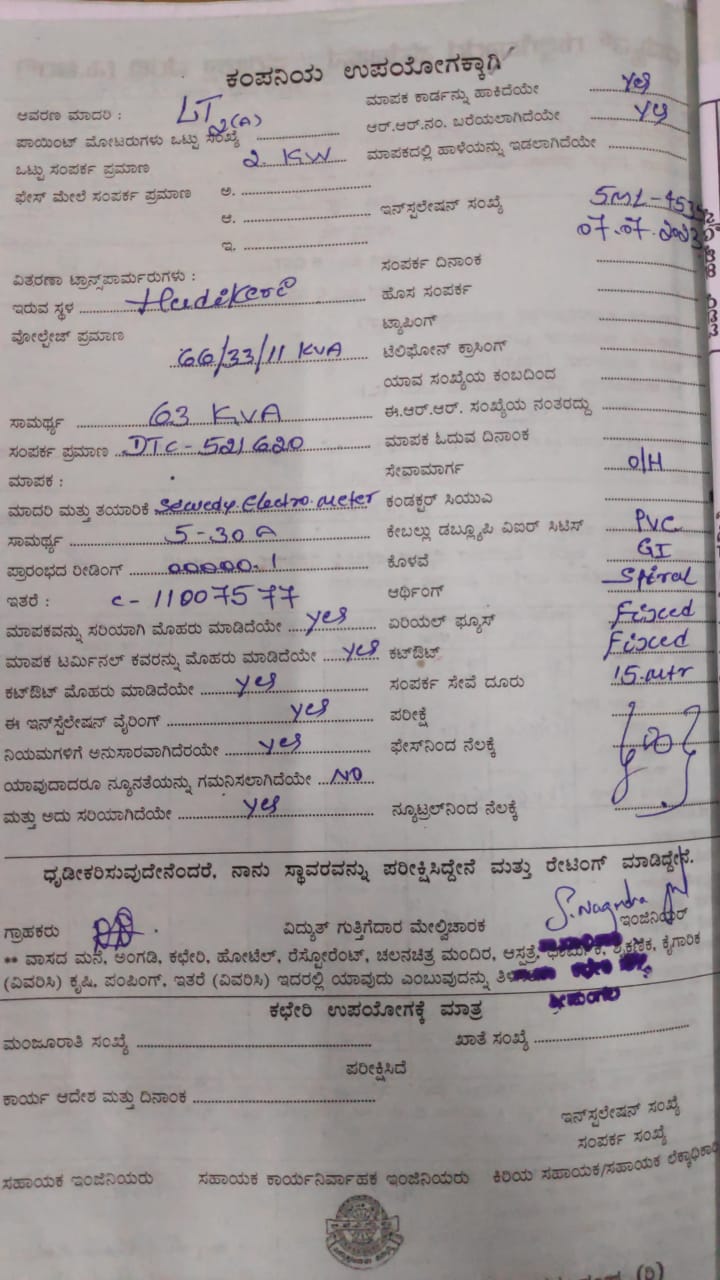 ಕಂಪನಿಯ ಉಪಯೋಗಕ್ಕಾಗಿ
ಆವರಣ ಮಾದರಿ : LT 2(A)
ಪಾಯಿಂಟ್ ಮೋಟರುಗಳು ಒಟ್ಟು ಸಂಖ್ಯೆ
ಒಟ್ಟು ಸಂಪರ್ಕ ಪ್ರಮಾಣ 2 KW
ಫೇಸ್ ಮೇಲೆ ಸಂಪರ್ಕ ಪ್ರಮಾಣ ಅ.
ಆ.
ಇ.
ವಿತರಣಾ ಟ್ರಾನ್ಸ್‌ಪಾರ್ಮರುಗಳು :
ಇರುವ ಸ್ಥಳ Hudikeri
ವೋಲ್ಟೇಜ್ ಪ್ರಮಾಣ
66/33/11 KVA
ಸಾಮರ್ಥ್ಯ 63 KVA
ಸಂಪರ್ಕ ಪ್ರಮಾಣ DTC - 521620
ಮಾಪಕ :
ಮಾದರಿ ಮತ್ತು ತಯಾರಿಕೆ Electro meter
ಸಾಮರ್ಥ್ಯ 5-30 A
ಪ್ರಾರಂಭದ ರೀಡಿಂಗ್ 00000.1
ಇತರೆ : C - 11007577
ಮಾಪಕವನ್ನು ಸರಿಯಾಗಿ ಮೊಹರು ಮಾಡಿದೆಯೇ yes
ಮಾಪಕ ಟರ್ಮಿನಲ್ ಕವರನ್ನು ಮೊಹರು ಮಾಡಿದೆಯೇ yes
ಕಟ್‌ಔಟ್ ಮೊಹರು ಮಾಡಿದೆಯೇ yes
ಈ ಇನ್‌ಸ್ಪೆಲೇಷನ್ ವೈರಿಂಗ್ yes
ನಿಯಮಗಳಿಗೆ ಅನುಸಾರವಾಗಿದೆರಯೇ yes
ಯಾವುದಾದರೂ ನ್ಯೂನತೆಯನ್ನು ಗಮನಿಸಲಾಗಿದೆಯೇ NO
ಮತ್ತು ಅದು ಸರಿಯಾಗಿದೆಯೇ yes
ಮಾಪಕ ಕಾರ್ಡನ್ನು ಹಾಕಿದೆಯೇ yes
ಆರ್.ಆರ್.ನಂ. ಬರೆಯಲಾಗಿದೆಯೇ yes
ಮಾಪಕದಲ್ಲಿ ಹಾಳೆಯನ್ನು ಇಡಲಾಗಿದೆಯೇ
ಇನ್‌ಸ್ಪಲೇಷನ್ ಸಂಖ್ಯೆ SML-453
07.07.2023
ಸಂಪರ್ಕ ದಿನಾಂಕ
ಹೊಸ ಸಂಪರ್ಕ
ಟ್ಯಾಪಿಂಗ್
ಟೆಲಿಫೋನ್ ಕ್ರಾಸಿಂಗ್
ಯಾವ ಸಂಖ್ಯೆಯ ಕಂಬದಿಂದ
ಈ.ಆರ್.ಆರ್. ಸಂಖ್ಯೆಯ ನಂತರದ್ದು
ಮಾಪಕ ಓದುವ ದಿನಾಂಕ
ಸೇವಾಮಾರ್ಗ O/H
ಕಂಡಕ್ಟರ್ ಸಿಯುಎ
ಕೇಬಲ್ಲು ಡಬ್ಲ್ಯೂಪಿ ವಿಐರ್ ಸಿಟಿಸ್ PVC
ಕೊಳವೆ GI
ಆರ್ಥಿಂಗ್ Spiral
ಏರಿಯಲ್ ಫ್ಯೂಸ್ Fixed
ಕಟ್‌ಔಟ್ Fixed
ಸಂಪರ್ಕ ಸೇವೆ ದೂರು 15 mtr
ಪರೀಕ್ಷೆ
ಫೇಸ್‌ನಿಂದ ನೆಲಕ್ಕೆ
ನ್ಯೂಟ್ರಲ್‌ನಿಂದ ನೆಲಕ್ಕೆ
ಧೃಡೀಕರಿಸುವುದೇನೆಂದರೆ, ನಾನು ಸ್ಥಾವರವನ್ನು ಪರೀಕ್ಷಿಸಿದ್ದೇನೆ ಮತ್ತು ರೇಟಿಂಗ್ ಮಾಡಿದ್ದೇನೆ.
ಗ್ರಾಹಕರು ವಿದ್ಯುತ್ ಗುತ್ತಿಗೆದಾರ ಮೇಲ್ವಿಚಾರಕ S. Nagndra ಇಂಜಿನಿಯರ್
** ವಾಸದ ಮನೆ, ಅಂಗಡಿ, ಕಛೇರಿ, ಹೋಟೆಲ್, ರೆಸ್ಟೋರೆಂಟ್, ಚಲನಚಿತ್ರ ಮಂದಿರ, ಆಸ್ಪತ್ರೆ, ಧಾರ್ಮಿಕ, ಶೈಕ್ಷಣಿಕ, ಕೈಗಾರಿಕ
(ವಿವರಿಸಿ) ಕೃಷಿ, ಪಂಪಿಂಗ್, ಇತರೆ (ವಿವರಿಸಿ) ಇದರಲ್ಲಿ ಯಾವುದು ಎಂಬುವುದನ್ನು
ಕಛೇರಿ ಉಪಯೋಗಕ್ಕೆ ಮಾತ್ರ
ಮಂಜೂರಾತಿ ಸಂಖ್ಯೆ ಖಾತೆ ಸಂಖ್ಯೆ
ಪರೀಕ್ಷಿಸಿದೆ
ಕಾರ್ಯ ಆದೇಶ ಮತ್ತು ದಿನಾಂಕ
ಇನ್‌ಸ್ಪಲೇಷನ್ ಸಂಖ್ಯೆ
ಸಂಪರ್ಕ ಸಂಖ್ಯೆ
ಸಹಾಯಕ ಇಂಜಿನಿಯರು ಸಹಾಯಕ ಕಾರ್ಯನಿರ್ವಾಹಕ ಇಂಜಿನಿಯರು ಕಿರಿಯ ಸಹಾಯಕ/ಸಹಾಯಕ ಲೆಕ್ಕಾಧಿಕಾರಿ